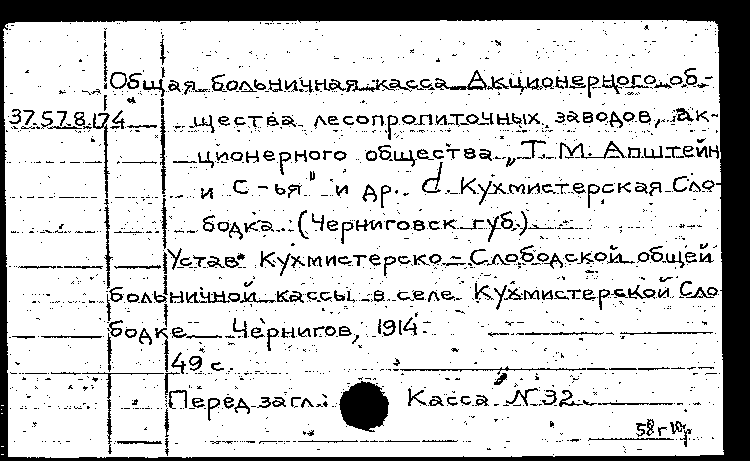 Общая больничная касса Акционерного об-
37.57.8.174 щества лесопропиточных заводов, ак-
ционерного общества „Т. М. Апштейн
и С-ья" и др. d. Кухмистерская Сло-
бодка (Черниговск губ.)
Устав Кухмистерско-Слободской общей
больничной кассы в селе Кухмистерской Сло-
бодке Чернигов, 1914.
49 с.
Перед загл.: Касса N 32.
58г